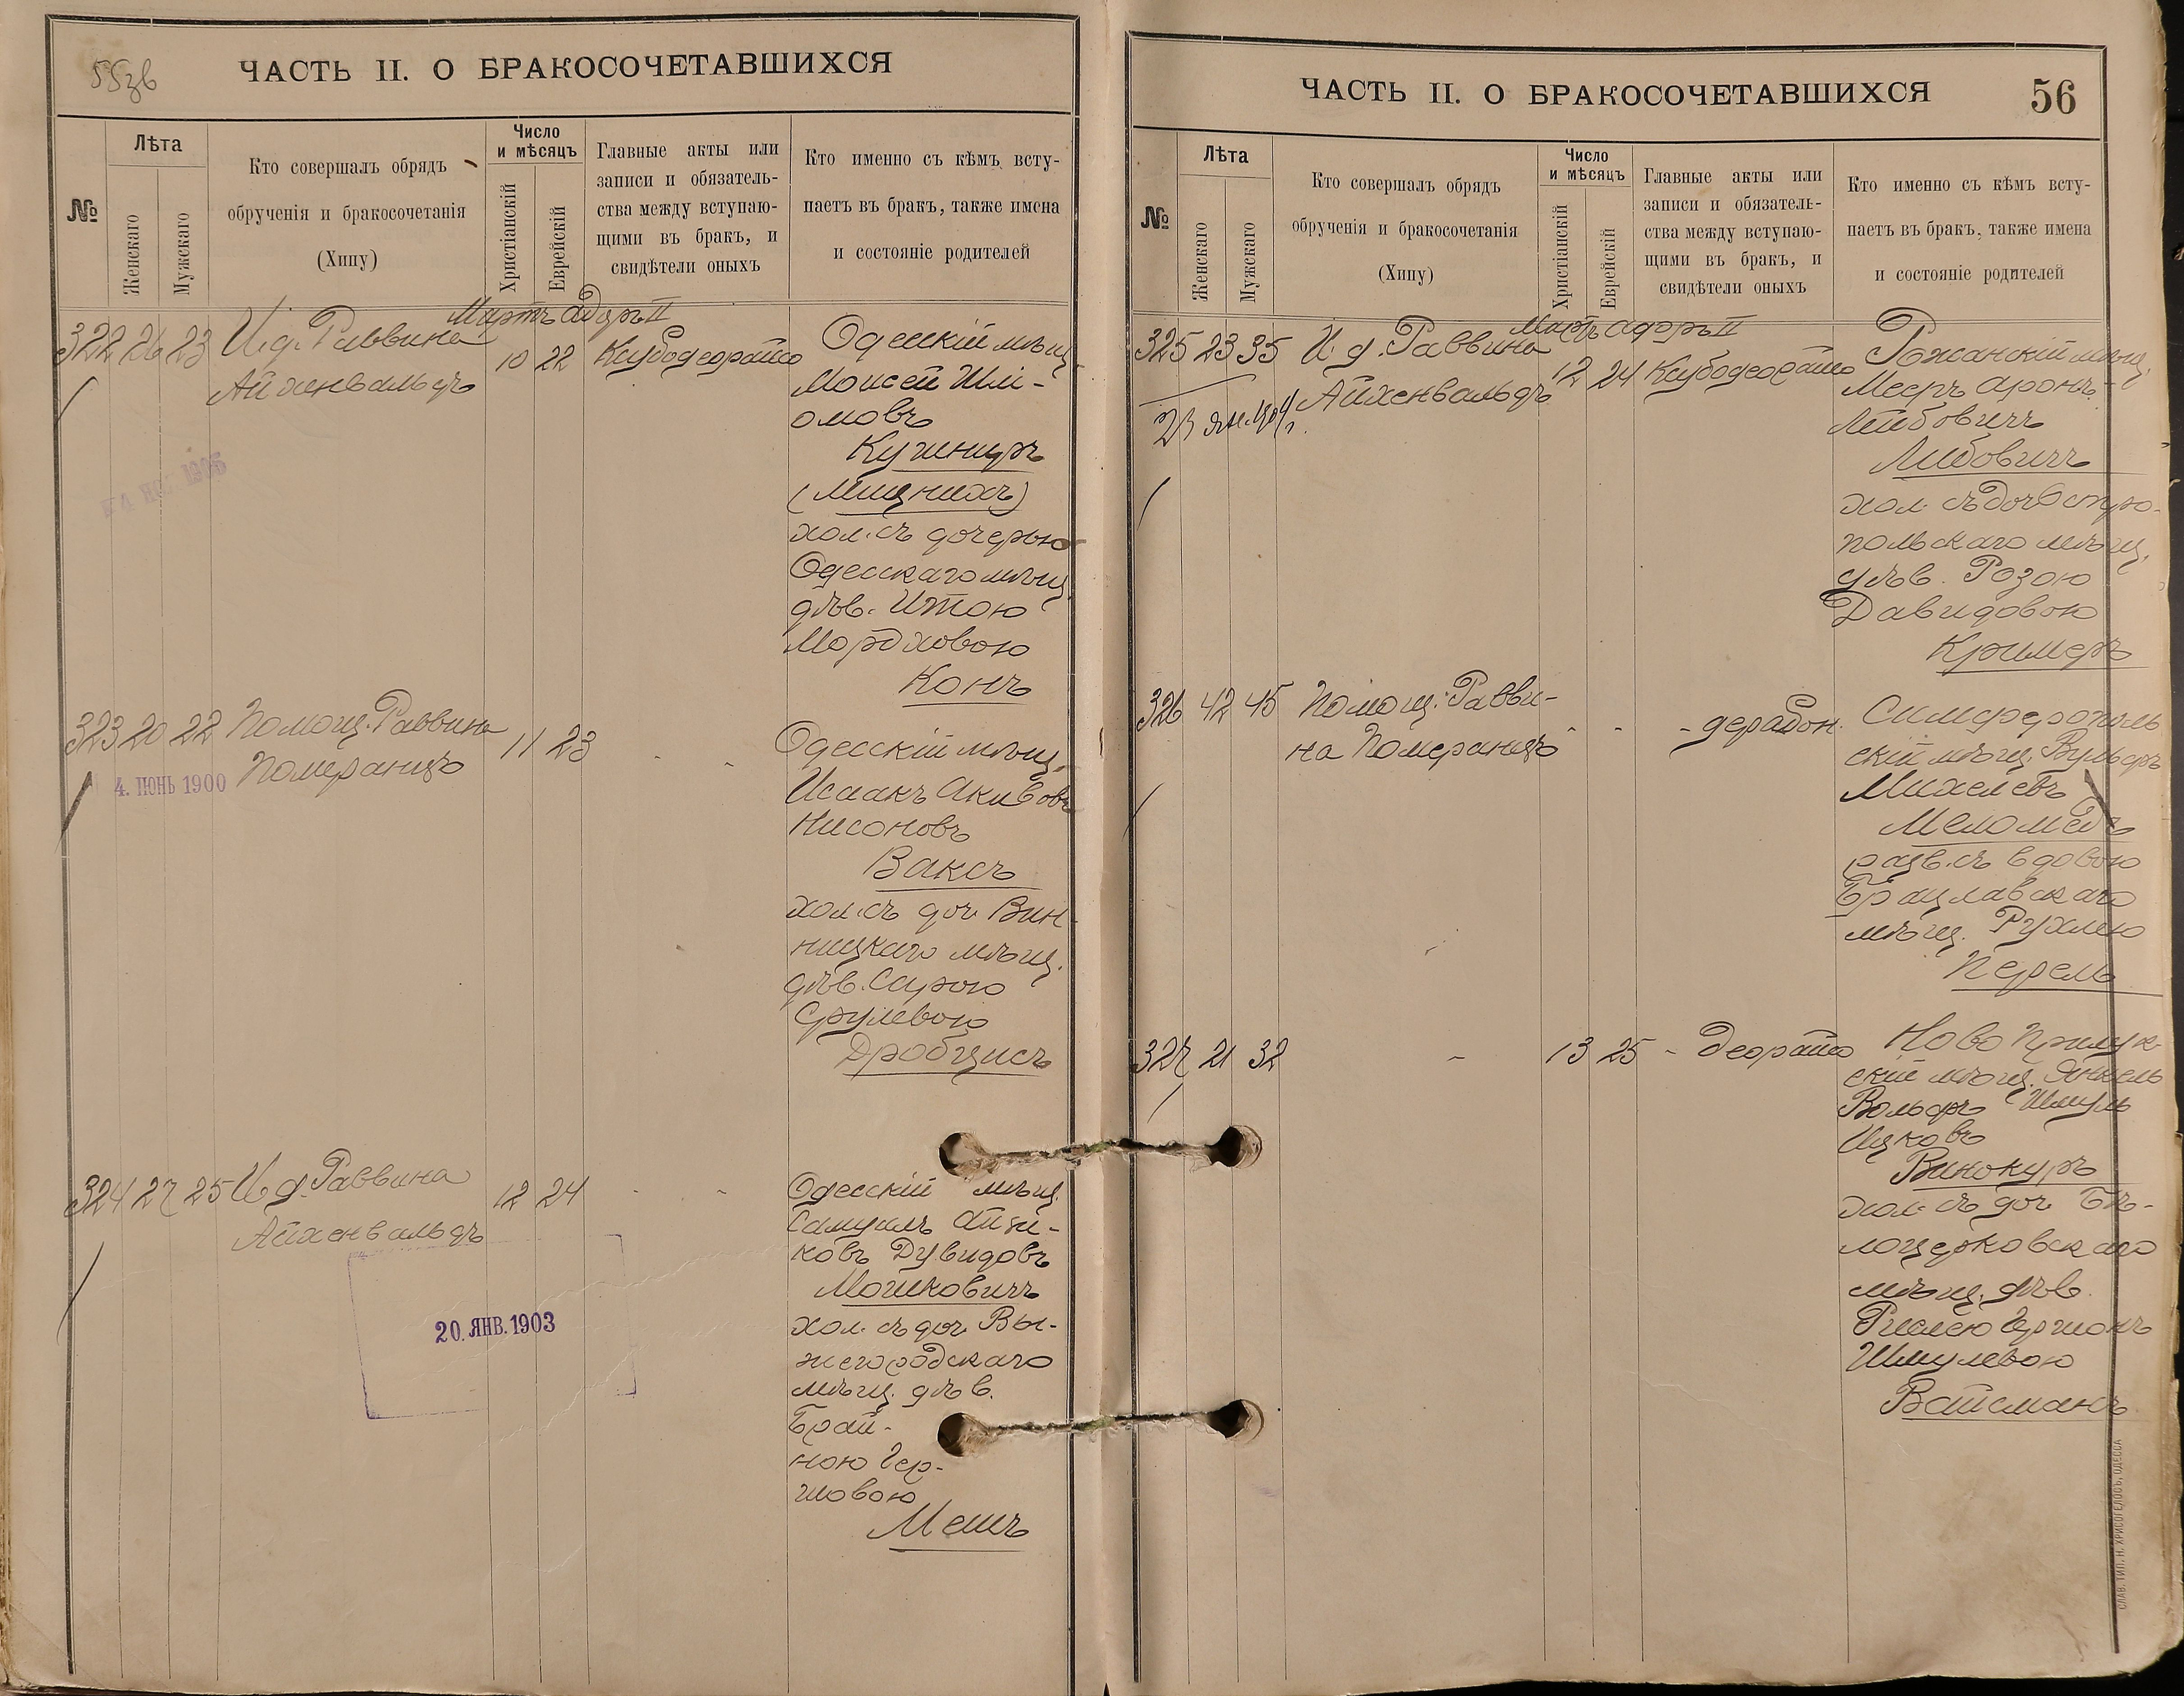 55зв
ЧАСТЬ II. О БРАКОСОЧЕТАВШИХСЯ
№
Лѣта
Женскаго
Мужскаго
Кто совершалъ обрядъ
обрученія и бракосочетанія
(Хипу)
Число
и мѣсяцъ
Христіанскій
Еврейскій
Главные акты или
записи и обязатель-
ства между вступаю-
щими въ бракъ, и
свидѣтели оныхъ
Кто именно съ кѣмъ всту-
паетъ въ бракъ, также имена
и состояніе родителей
Мартъ Адаръ II
322 26 23 И.д. Раввина 10 22 Ксубодеорайсо
Айхенвальдъ
Одесскій мѣщ.
Моисей Шлі-
омовъ
Кушниръ
хол. съ дочерью
Одесскаго мѣщ.
дѣв. Итою
Мордховою
Конъ
323 20 22 Помощ. Раввина 11 23
Померанцъ
4. ІЮНЬ 1900
Одесскій мѣщ.
Исаакъ Акивовъ
Нисоновъ
Ваксъ
хол. съ доч. Вин-
ницкаго мѣщ.
дѣв. Сарою
Срулевою
Дробцисъ
324 27 25 И д. Раввина 12 24
Айхенвальдъ
20. ЯНВ. 1903
Одесскій мѣщ.
Самуилъ Айзи-
ковъ Дувидовъ
Мошковичъ
хол. съ доч. Вы-
жегородскаго
мѣщ. дѣв.
Брай-
ною Гер-
шовою
Мешъ
ЧАСТЬ II. О БРАКОСОЧЕТАВШИХСЯ
56
№
Лѣта
Женскаго
Мужскаго
Кто совершалъ обрядъ
обрученія и бракосочетанія
(Хипу)
Число
и мѣсяцъ
Христіанскій
Еврейскій
Главные акты или
записи и обязатель-
ства между вступаю-
щими въ бракъ, и
свидѣтели оныхъ
Кто именно съ кѣмъ всту-
паетъ въ бракъ, также имена
и состояніе родителей
Мартъ Адаръ II
325 23 35 И д. Раввина 12 24 Ксубодеорайсо
Айхенвальдъ
Рожанскій мѣщ.
Мееръ Аронъ-
Лейбовичъ
Либовичъ
хол. съ доч. Остро-
польскаго мѣщ.
дѣв. Розою
Давидовою
Кримеръ
326 42 45 Помощ. Равви-
на Померанцъ
- дерабон.
Симферополь
скій мѣщ. Вульфъ
Михелевъ
Меломедъ
разв. съ вдовою
Брацлавскаго
мѣщ. Рухлею
Перель
327 21 32 - 13 25 - деорайсо
Ново Прилук-
скій мѣщ. Янкель
Вольфъ Шмуль
Ицковъ
Винокуръ
хол. съ доч. Бѣ-
лоцерковскаго
мѣщ. дѣв.
Шмулевою
Вайсманъ
СЛАВ. ТИП. Н. ХРИСОГЕЛОСЪ, ОДЕССА